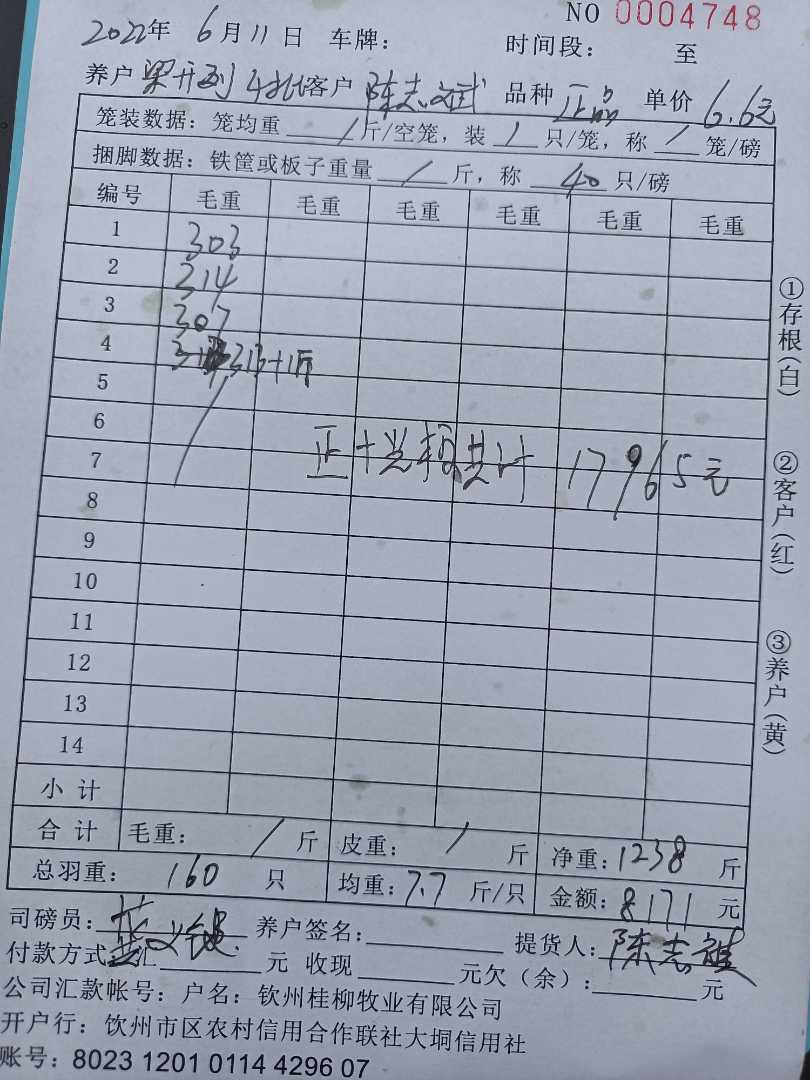 NO 0004748
2022年 6月11日 车牌： 时间段： 至
养户 梁开列 4批客户 陈志斌 品种 正品 单价 6.6元
笼装数据：笼均重 / 斤/空笼，装 / 只/笼，称 / 笼/磅
捆脚数据：铁筐或板子重量 / 斤，称 40 只/磅
编号 毛重 毛重 毛重 毛重 毛重 毛重
1 303
2 314
3 307
4 313+1斤
5
6
正+ 共计 17965元
7
8
9
10
11
12
13
14
小计
合计 毛重： / 斤 皮重： / 斤 净重：1238 斤
总羽重： 160 只 均重：7.7 斤/只 金额：8171 元
司磅员： 养户签名： 提货人：陈志斌
付款方式 汇 元 收现 元欠（余）： 元
公司汇款帐号：户名：钦州桂柳牧业有限公司
开户行：钦州市区农村信用合作联社大垌信用社
账号：8023 1201 0114 4296 07
①存根（白）
②客户（红）
③养户（黄）